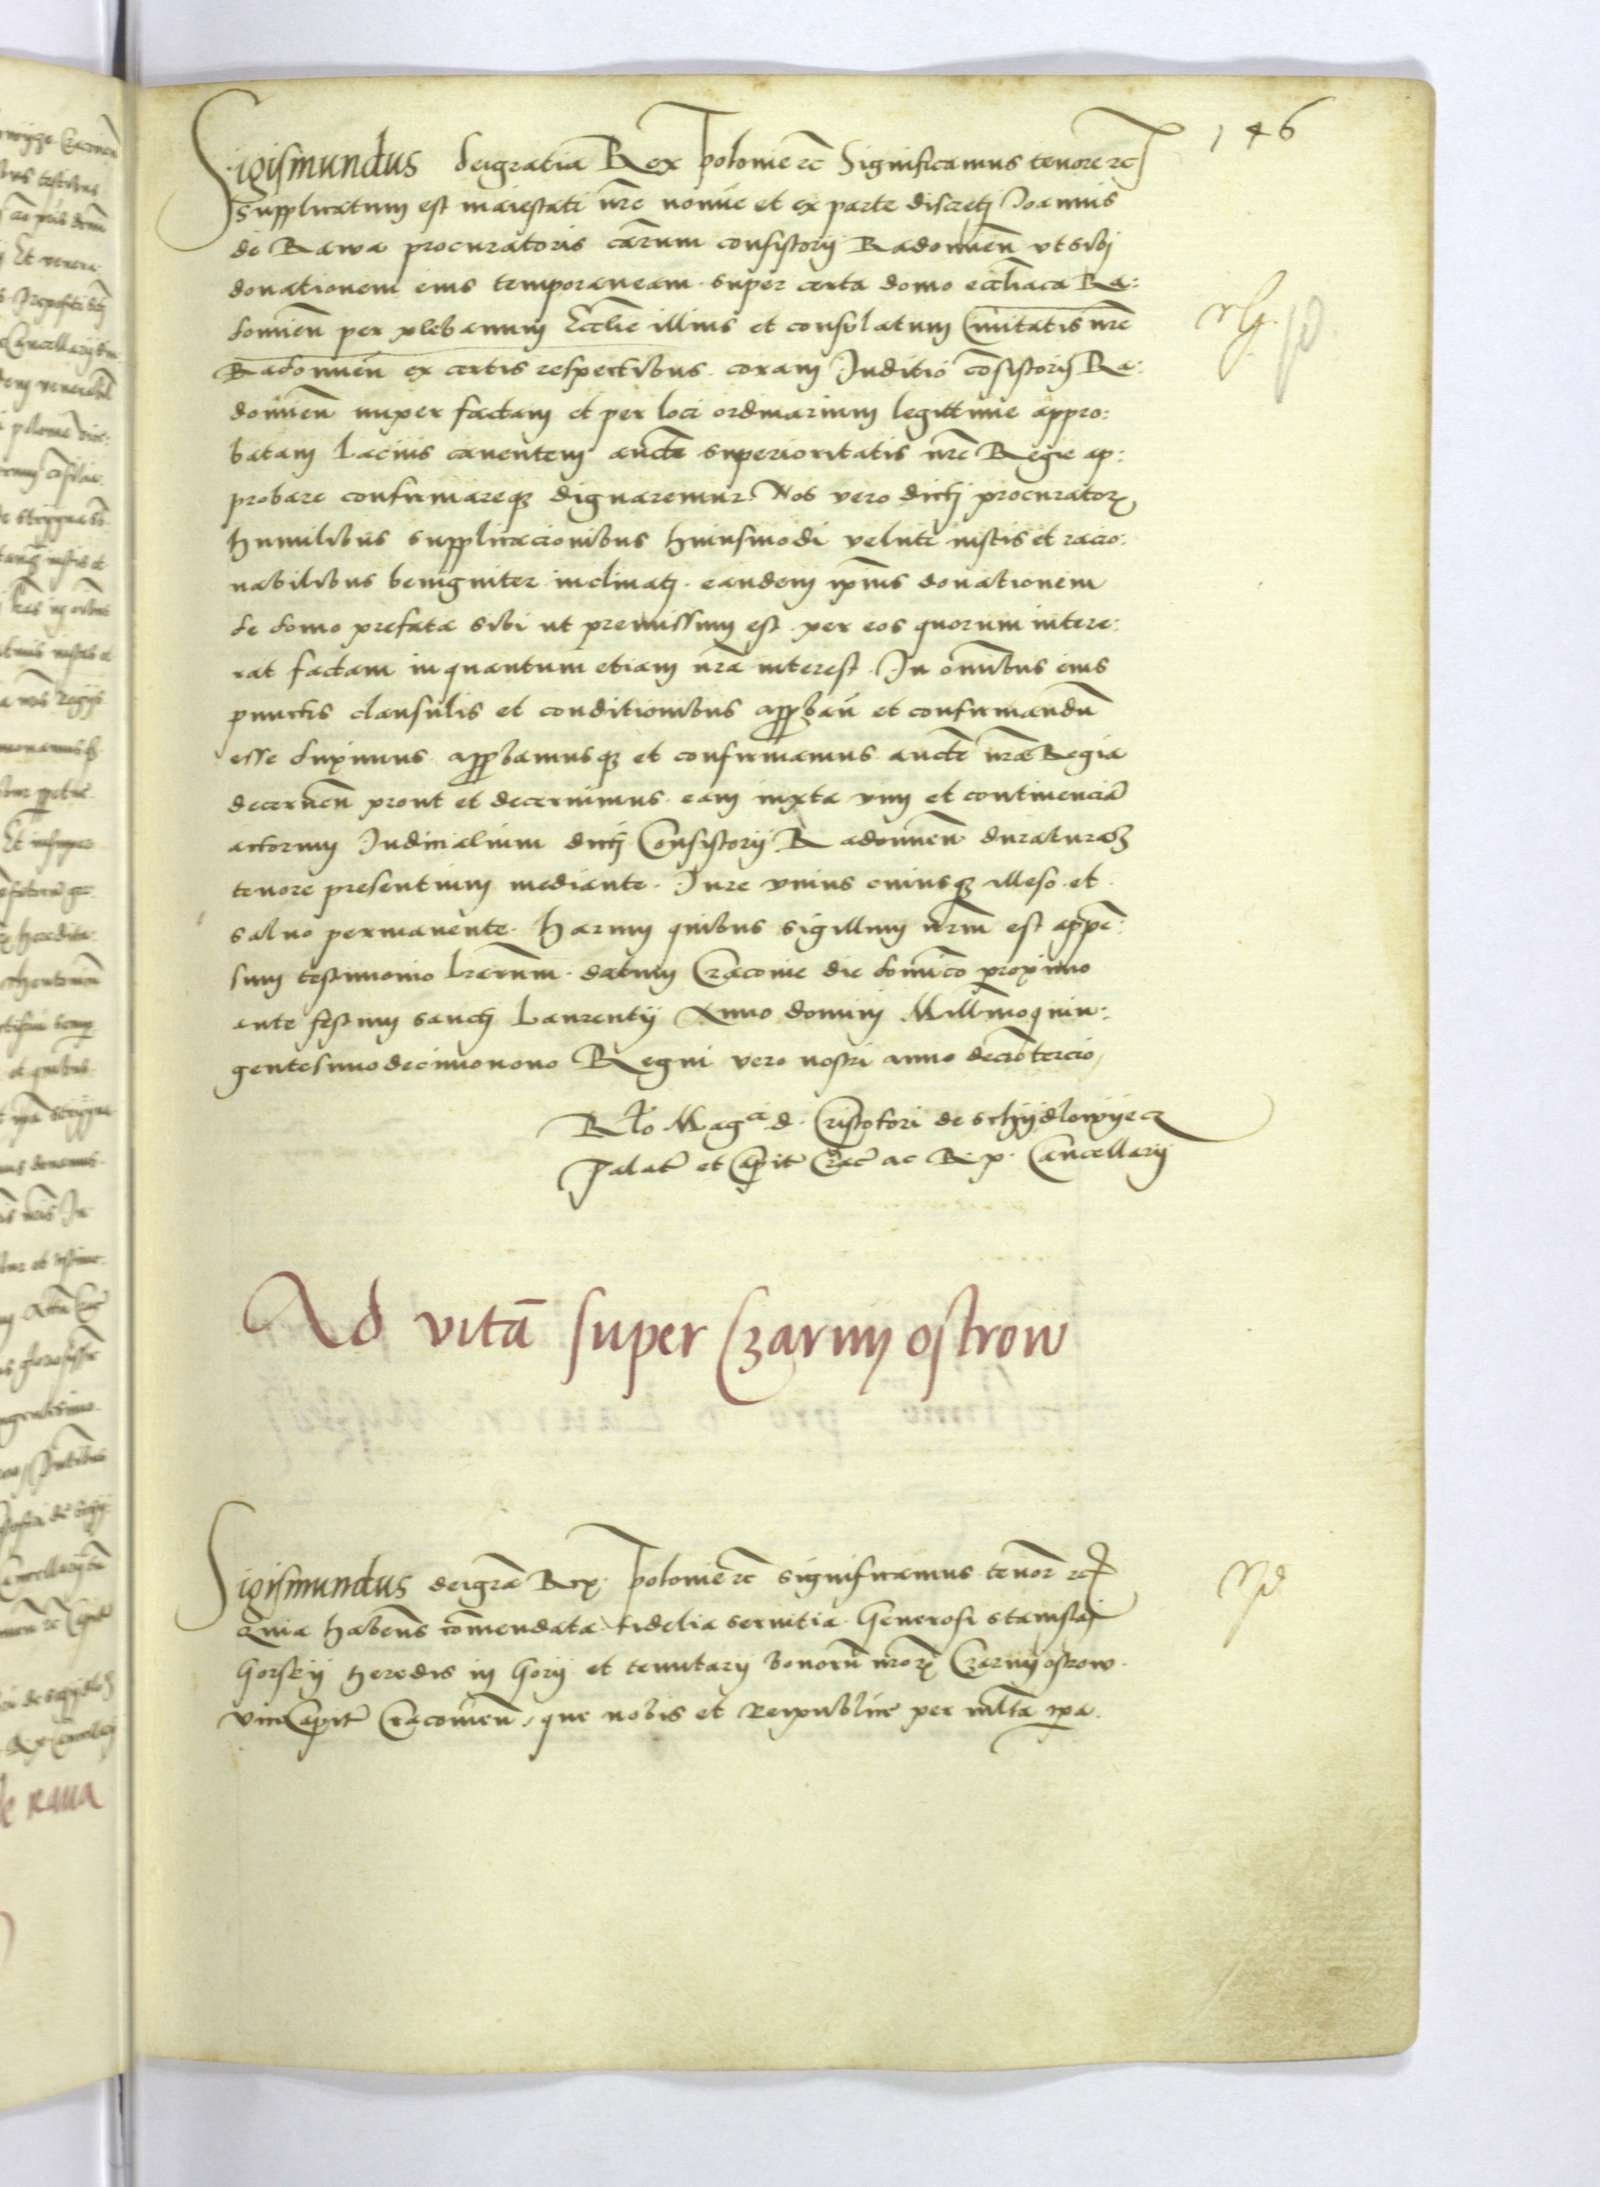 146
Sigismundus deigratia Rex Polonie rc Significamus tenore rc
Supplicatum est maiestati nre nomine et ex parte discreti Joannis
de Rawa procuratoris carum consistorij Radomien ut sibi
donationem eius temporaneam super certa domo eccliaca Ra:
domien per plebanum Ecclie illius et consulatum Civitatis nre
Radomien ex certis respectibus coram Juditio cosistorij Ra:
domien nuper factam et per loci ordinarium legittime appro:
batam Lacius canentem aucte superioritatis nre Regie ap:
probare confirmareq dignaremur Nos vero dicti procurator
humilibus supplicacionibus huiusmodi velute iustis et racio:
nabilibus benigniter inclinati eandem ipius donationem
de domo prefata sibi ut premissum est per eos quorum intere:
rat factam in quantum etiam nra interest In omnibus eius
punctis clausulis et conditionibus approban et confirmandu
esse duximus approbamusq et confirmamus aucte nra Regia
decernen prout et decernimus eam iuxta vim et continencia
actorum Judicialium dicti Consistorij Radomien duraturam
tenore presentium mediante Jure unius cuiusq illeso et
salvo permanente Harum quibus sigillum nrm est appe:
sum testimonio lrarum datum Cracovie die domico proximo
ante festum sancti Laurentij Anno domini Millmoquin:
gentesimodecimonono Regni vero nostri anno deciotercio
Rlo Magci d Cristofori de schijdlowijecz
Palat et Capit Crac ac R p Cancellarij
Ad vita super Czarnij ostrow
Sigismundus deigra Rex Polonie rc significamus tenor rc
Quia habens comendata fidelia servitia Generosi stanislai
Gorskij heredis in Gorij et tenutarij bonoru nror Czarnij ostrow
viceCapit Cracovien que nobis et Reipublice per multa tpa